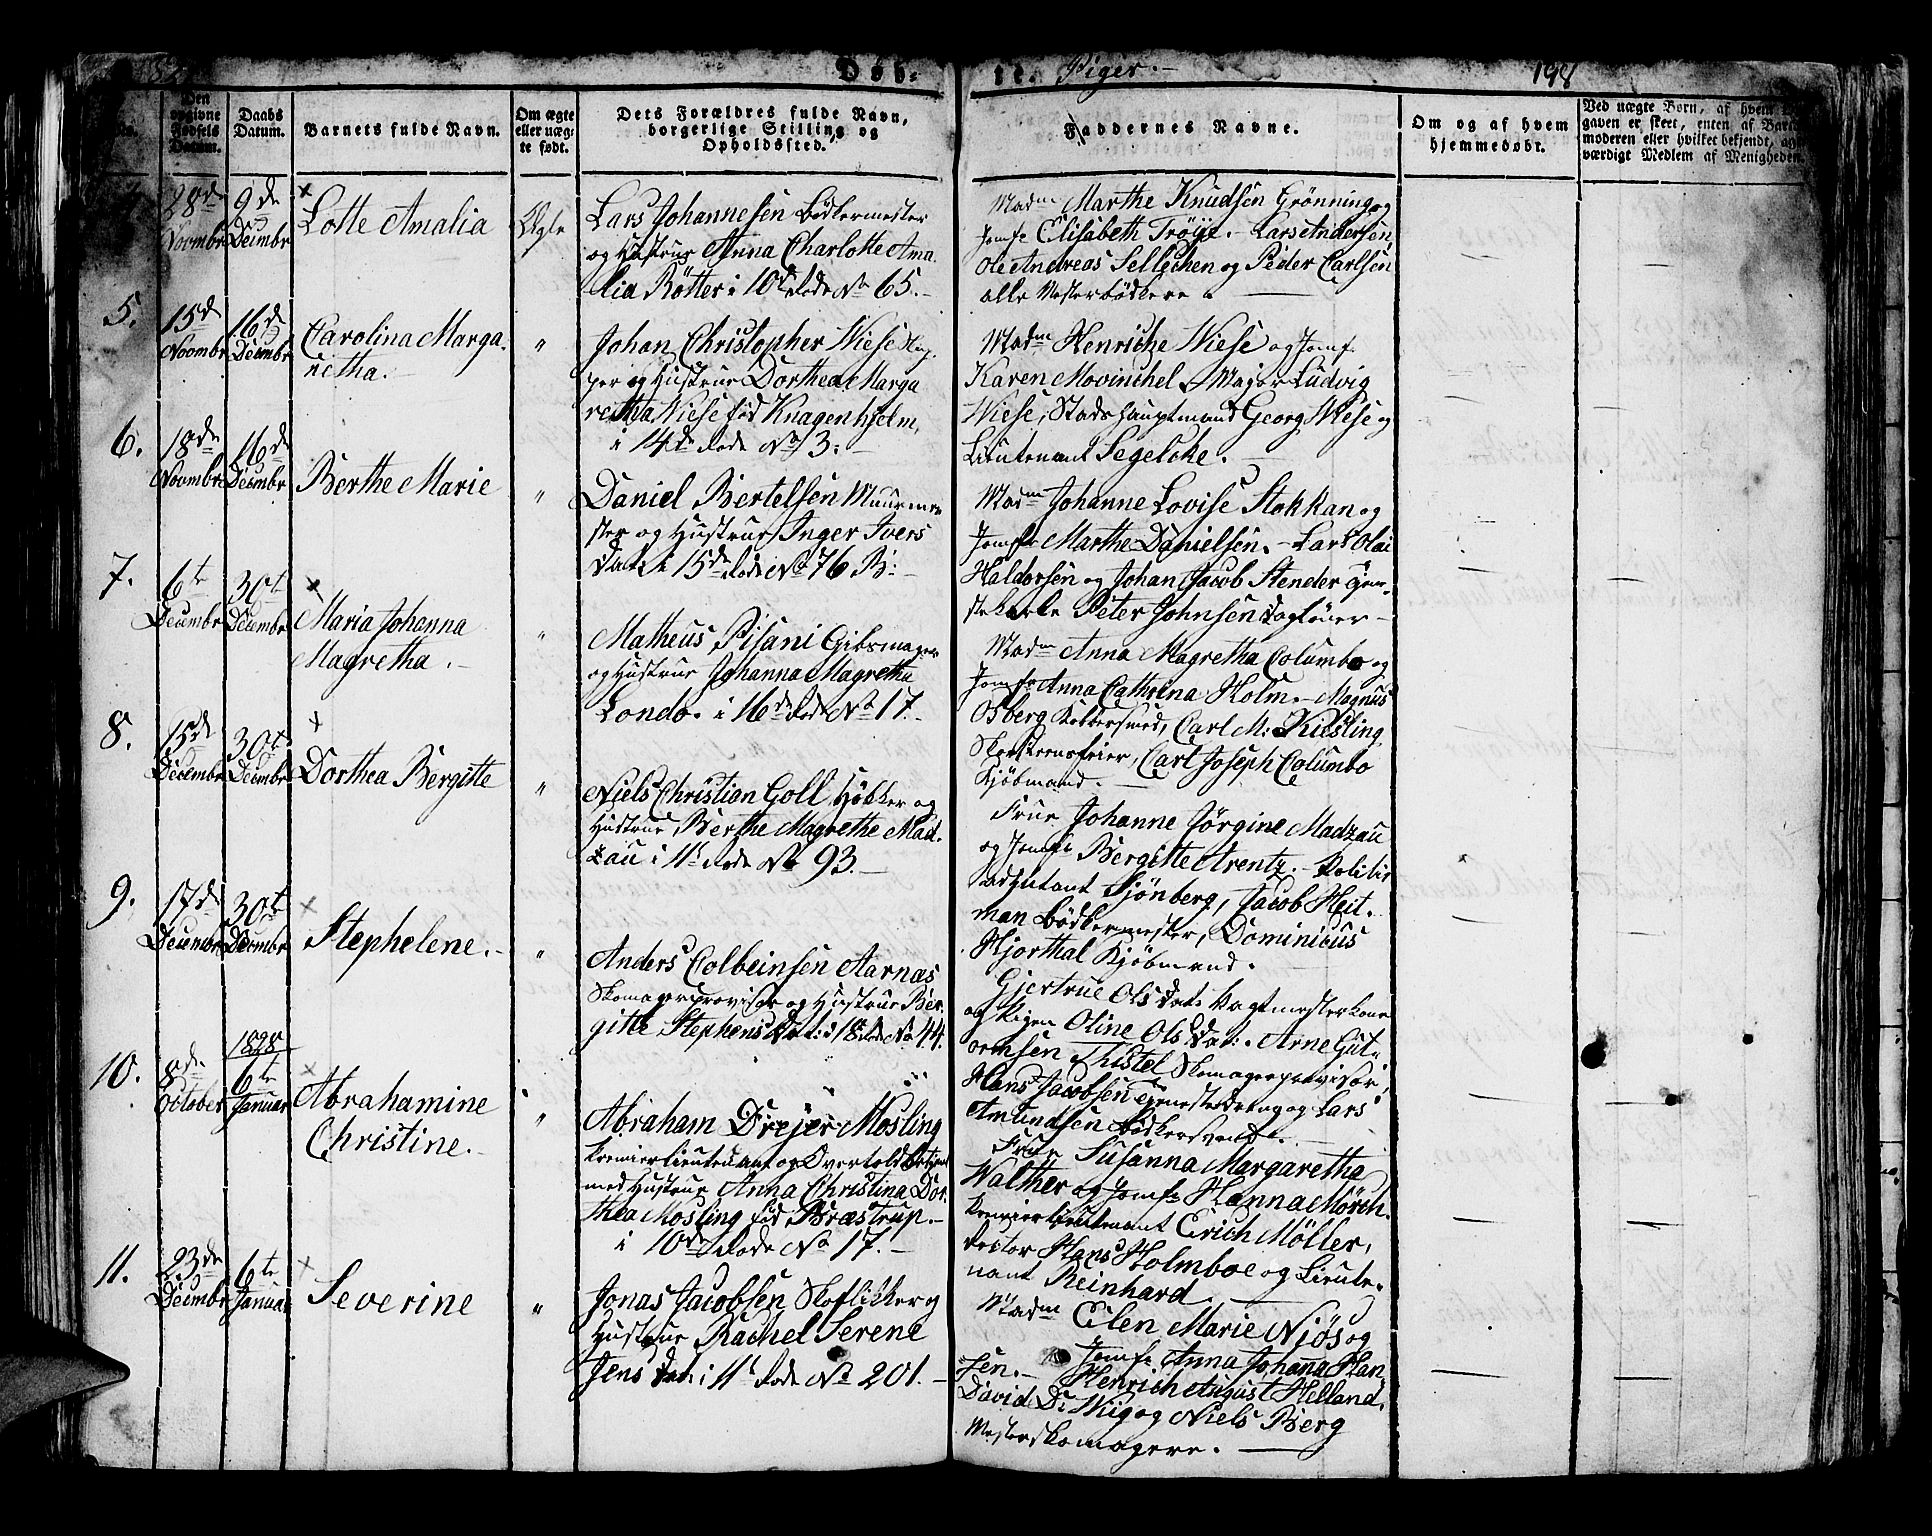 182
Døb-
te. Piger.-
198
Den
opgivne
Fødsels
Datum.
Daabs
Datum.
Barnets fulde Navn.
Om ægte
eller uæg-
te født.
Dets Forældres fulde Navn,
borgerlige Stilling og
Opholdssted.
Faddernes Navne.
Om og af hvem
hjemmedøbt.
Ved uægte Børn, af hvem
gaven er skeet, enten af Barne
moderen eller hvilket bekjendt, og
værdigt Medlem af Menigheden.
28de
Novmbr
9de
Decmbr
Lotte Amalia
Ægte
Lars Johannesen Bødkermester
og Hustrue Anna Charlotte Ama-
lia Rötter i 10de Rode No 65.-
Madm Marthe Knudsen Grönning og
Jomfr Elisabeth Tröye.- Lars Andersen,
Ole Andreas Sellechen og Peder Carlsen
alle Mesterbödkere.
5.
15de
Novmbr
16de
Decmbr
Carolina Marga-
retha.-
"
Johan Christopher Wiese
og Hustrue Dorthea Marga
retha Wiese fød Knagenhjelm,
i 14de Rode No 3.-
Madm Henriche Wiese og Jomf.
Karen Movinchel, Major Ludvig
Wiese, Stadshauptmand Georg Wiese og
Lieutenant Segelcke.
6.
18de
Novmbr
16de
Decmbr
Berthe Marie
"
Daniel Bertelsen Muurme
ster og Hustrue Inger Ivers
Dat. i 15de Rode No 76 B:-
Madm Johanne Lovise Stokkan og
Jomfr Marthe Danielsen.- Lars Olai
Haldorsen og Johan Jacob Stender Tjene-
stekarle Peter Johnsen Dagløner-
7.
6te
Decmbr
30te
Decmbr
Maria Johanna
Magretha.-
"
Matheus Pisani Gibsmager
og Hustrue Johanna Magretha
Londo. i 16de Rode No 17.-
Madm Anna Magretha Columbo og
Jomfr Anna Cathrina Holm.- Magnus
Osberg Kobbersmed, Carl M: Kiesling
Skorsteensfeier, Carl Joseph Columbo
Kjöbmand.
8.
15de
Decembr
30te
Decmbr
Dorthea Bergitte
"
Niels Christian Goll Høkker og
Hustrue Berthe Magrethe Mad-
zau i 11te Rode No 93.-
Frue Johanne Jörgine Madzau
og Jomfr Bergitte Arentz.- Politie
adjutant Sjönberg, Jacob Heit-
man Bödkermester, Dominicus
Hjorthal Kjöbmand.
9.
17de
Decembr
30te
Decmbr
Stephelene.-
"
Anders Colbeinsen Aarnæs
Skomagerprovisor og Hustrue Ber-
gitte Stephens Dat: i 18de Rode No 44.
Gjertrue Ols Dat Vagtmesterkone
og Pigen Oline Ols Dat:. Arne Gut-
ormsen Thistel Skomagerprovisor,
Hans Jacobsen Tjenestedreng og Lars
Amundsen Bödkersvend.
10.
8de
October
1828
6te
Januar
Abrahamine
Christine.-
"
Abraham Drejer Mosling
Premierlieutenant og Overtoldbetjent
med Hustrue Anna Christina Dor-
thea Mosling fød Bræstrup.-
i 10de Rode No 17.-
Frue Susanna Margaretha
Walther og Jomfr Hanna Mörch.
Premierlieutenant Erich Möller,
Rector Hans Holmboe og Lieute-
nant Reinhard
11.
23de
Decmbr
6te
Januar
Severine
"
Jonas Jacobsen Skoflikker og
Hustrue Rachel Serene
Jens Dat. i 11te Rode No 201.-
Madm Elen Marie Njös og
Jomfr Anna Johana Han
sen.- Henrich August Helland,
David D: Wiig og Niels Berg
Mesterskomagere.